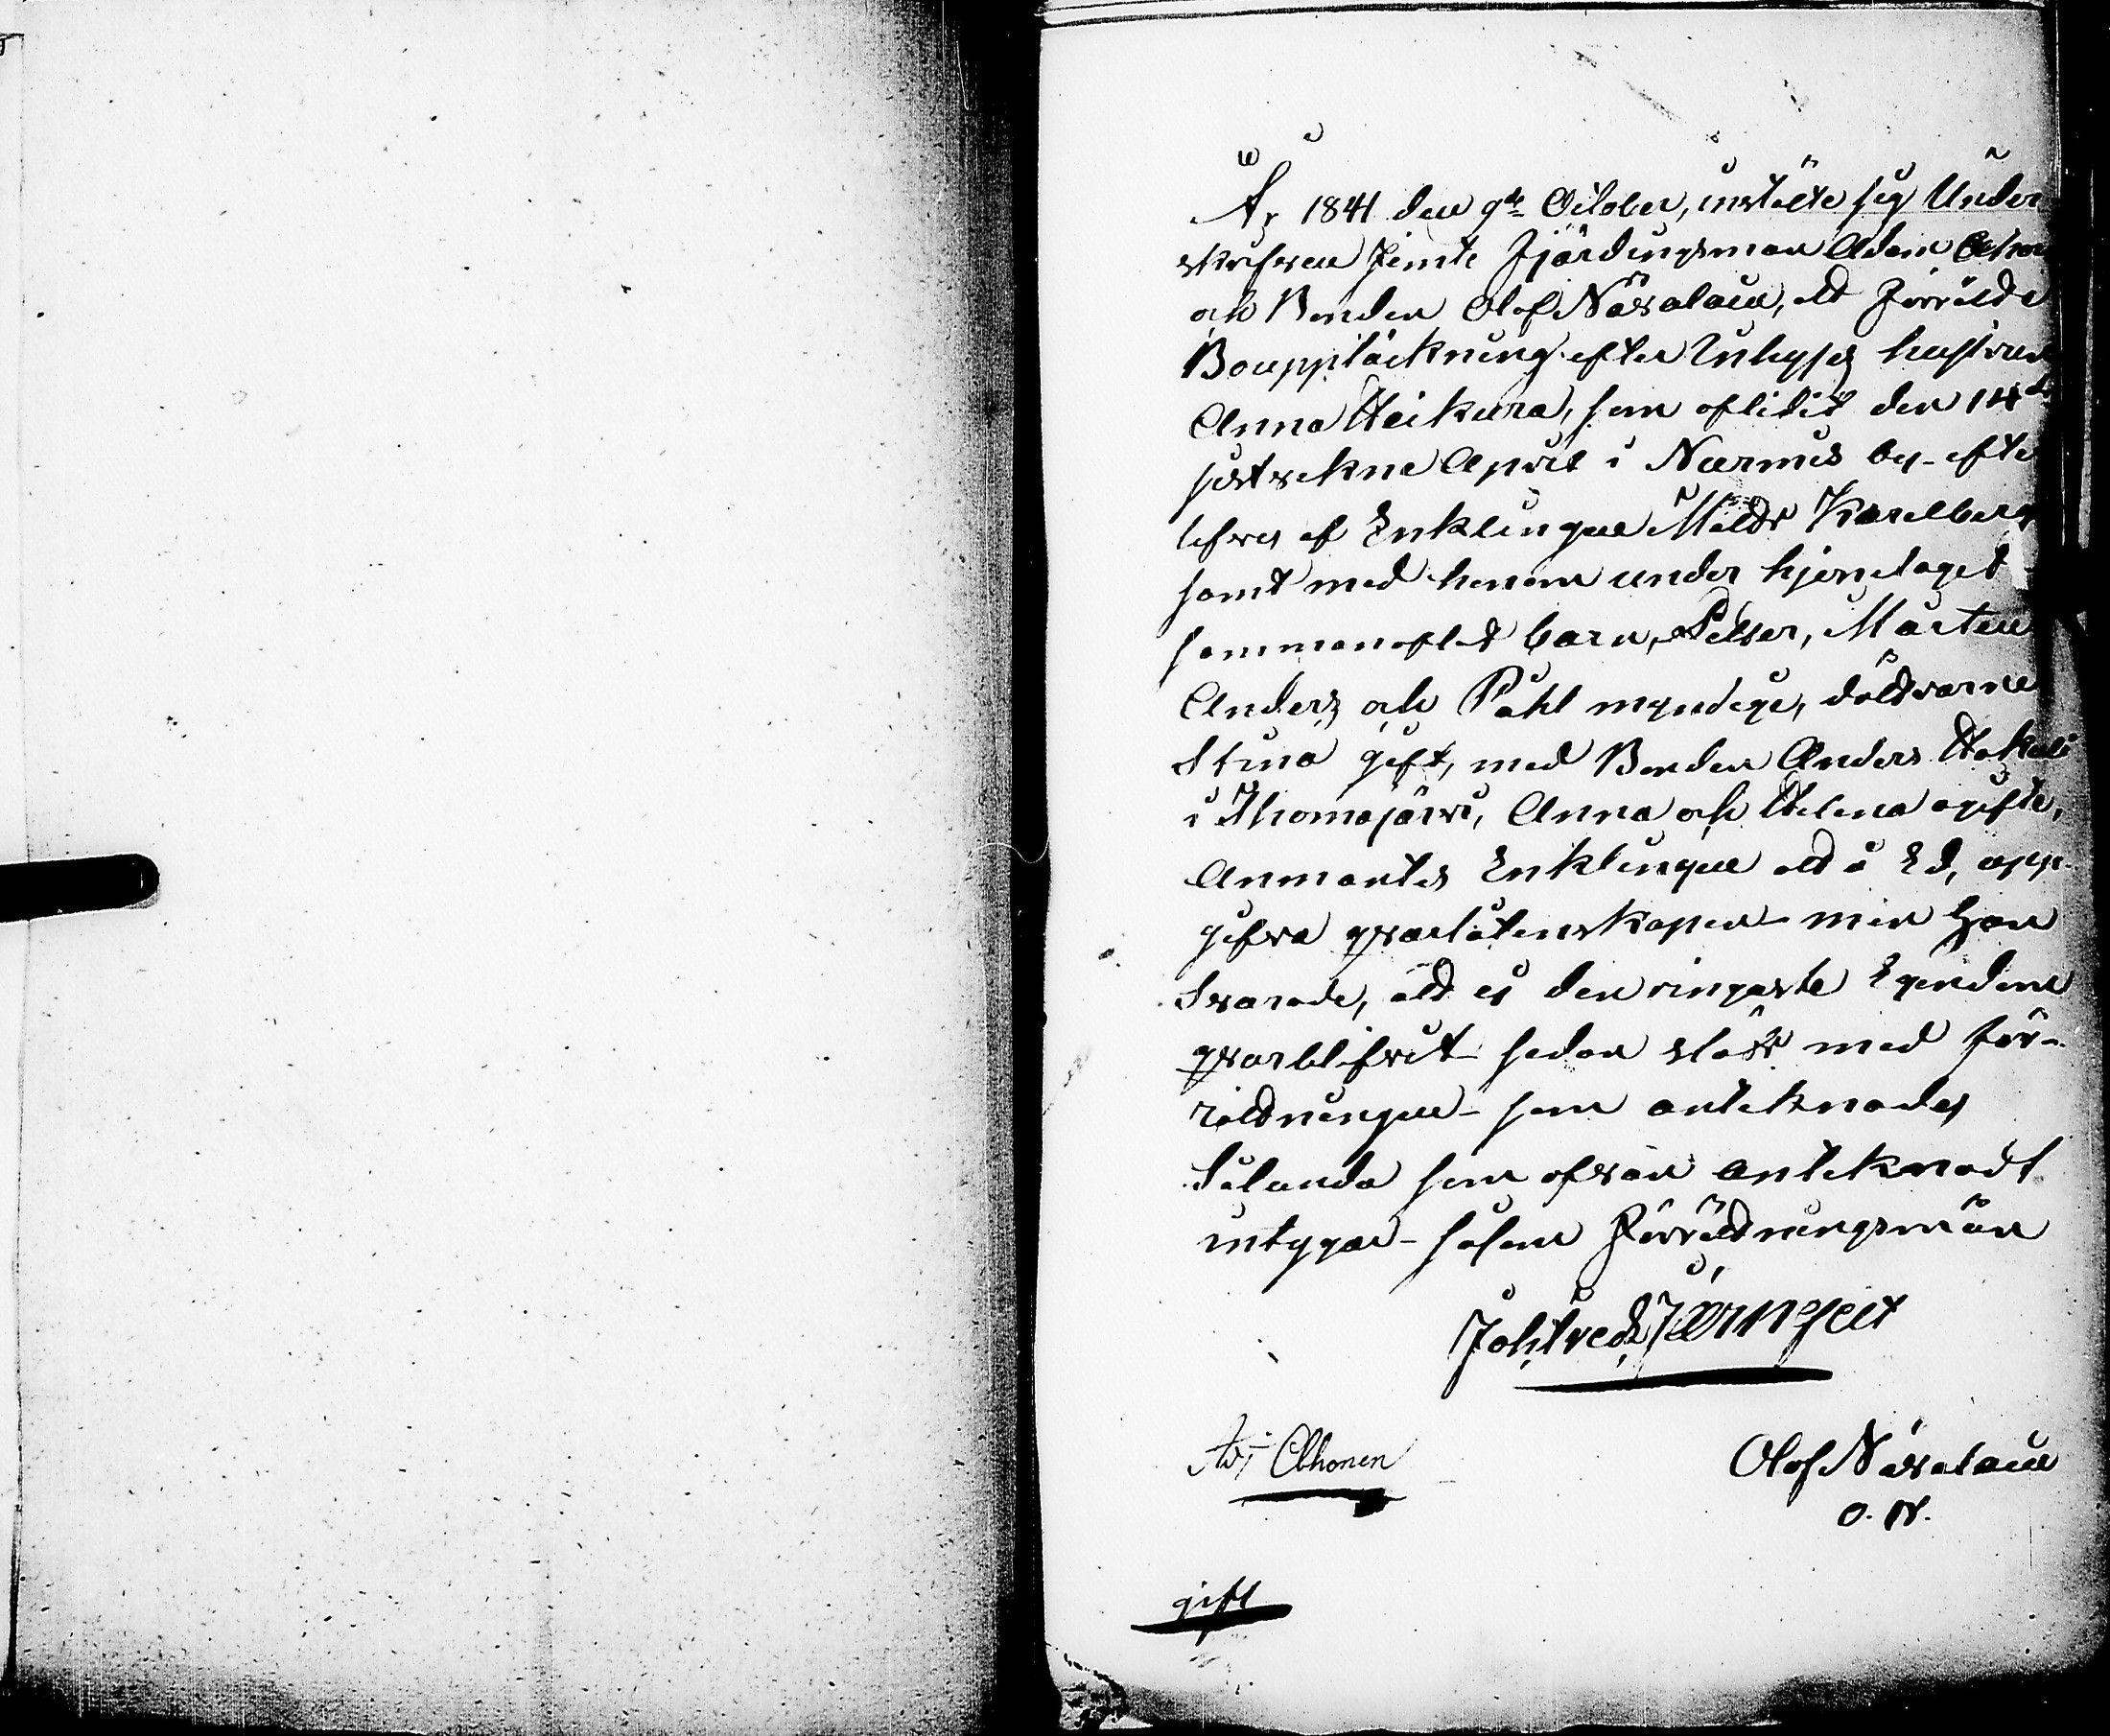 År 1841 den 9de October, instälte sig Under
skrifven jemte Fjärdingsman Adam Ahon
och Bonden Olof Näsalain, att förrätta
Bouppteckning efter Inhyses hustrun
Anna Heikura, som aflidit den 14de
sistvekne April i Nurmis by - efter
lefves af Enklingen Matts Karelberg
samt med henom under hjonelaget
sammanaflat barn, Petter, Mårten
Anders och Påhl myndige, döttrarne
Stina gift, med Bonden Anders Hakali
i Thomajärvi, Anna och Helena ogifte,
Anmantes Enklingen att å Ed, upp-
gifva qvarlåtenskapen - men Han
Svarade, att ej den ringaste Egendom
qvarblifvit - sedan slöts med för-
rättningen - som anteknades
Sålunda som ofvan anteknadt
intygar - såsom Förrättningsmän
Joh: Fredr: Järnefelt
Ad: Ahonen
Olof Näsalain
O. N.
gift